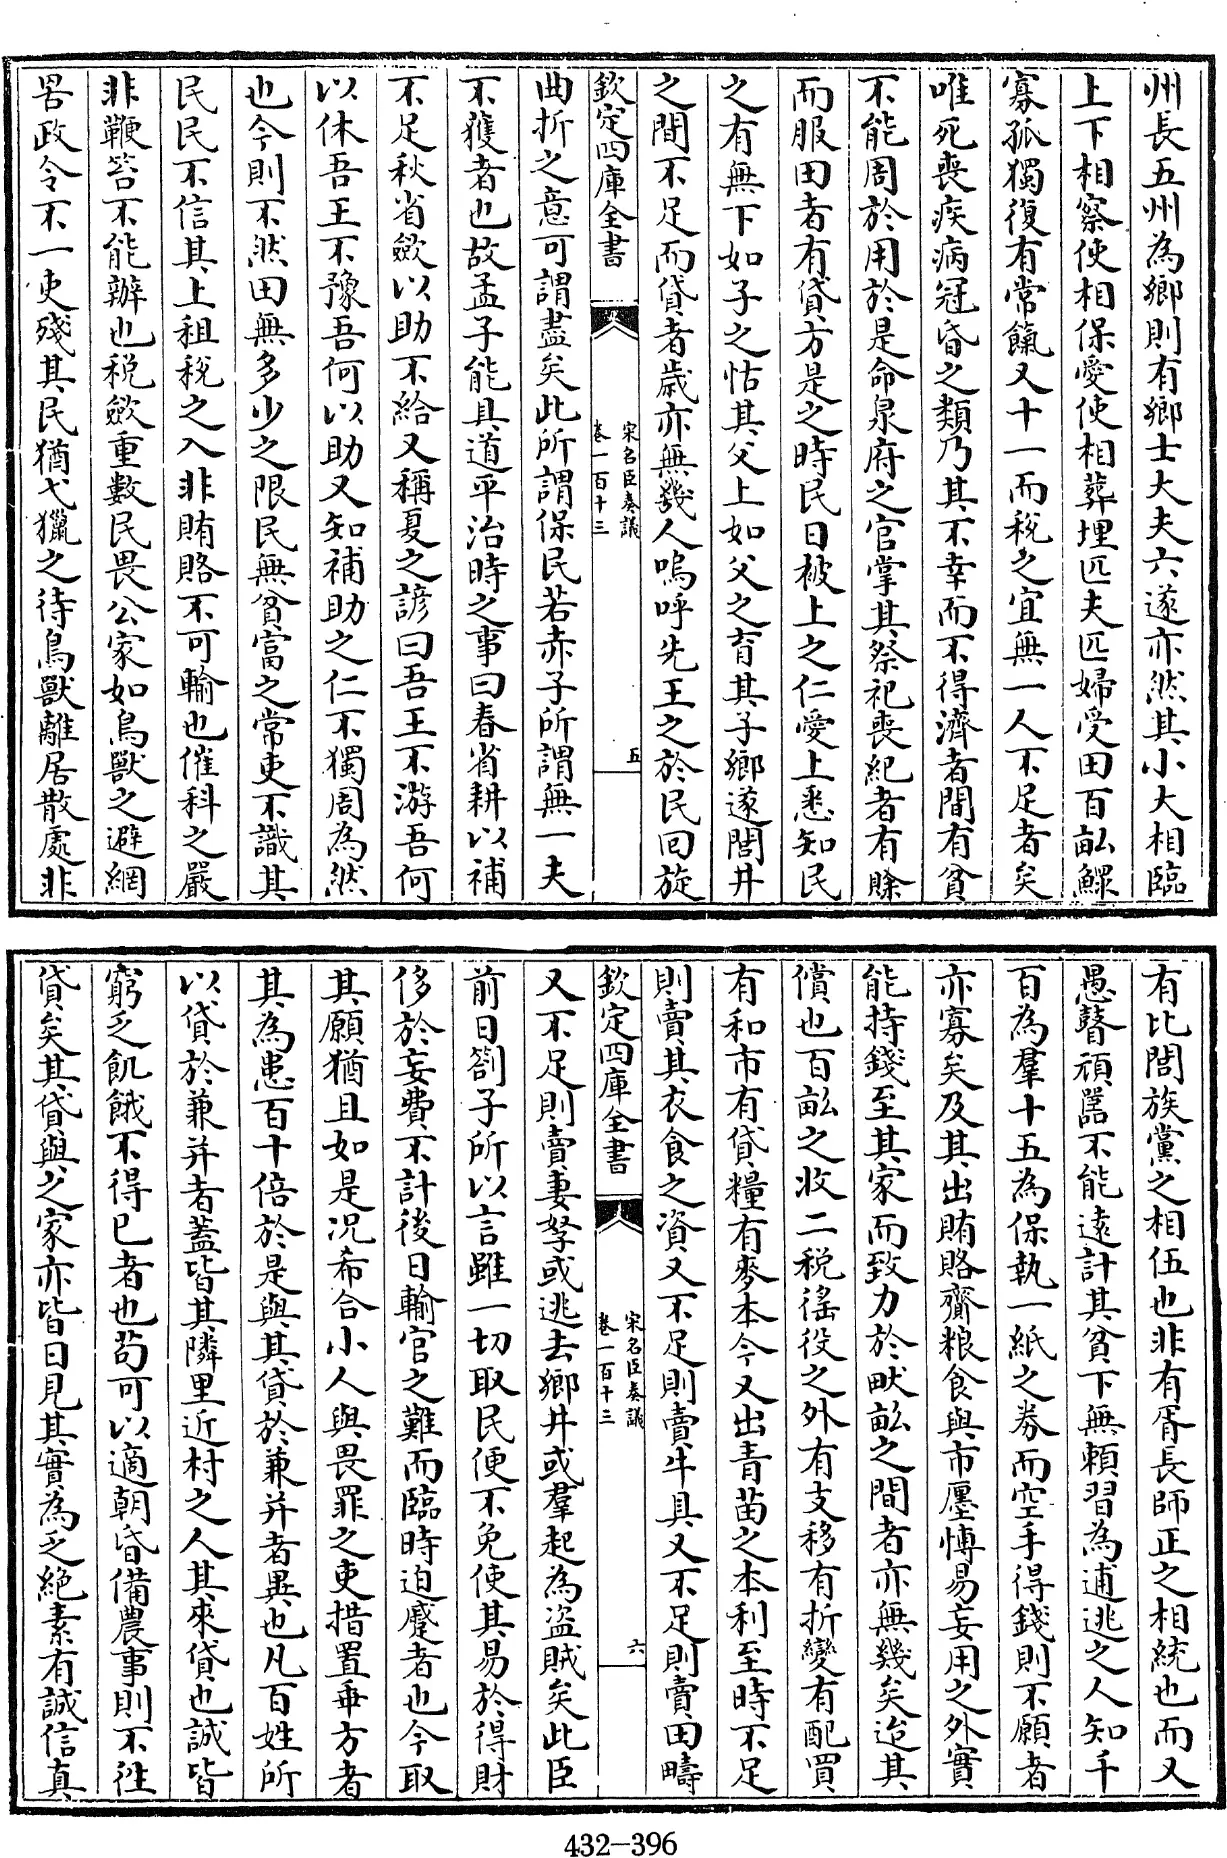 州長五州為鄉則有鄉士大夫六遂亦然其小大相臨
上下相察使相保愛使相葬埋匹夫匹婦受田百畝鰥
寡孤獨復有常餼又十一而稅之宜無一人不足者矣
唯死喪疾病冠昏之類乃其不幸而不得濟者間有貧
不能周於用於是命泉府之官掌其祭祀喪紀者有賒
而服田者有貸方是之時民日被上之仁愛上悉知民
之有無下如子之怙其父上如父之育其子鄉遂閭井
之間不足而貸者歲亦無幾人嗚呼先王之於民回旋
欽定四庫全書
宋名臣奏議
卷一百十三
五
曲折之意可謂盡矣此所謂保民若赤子所謂無一夫
不獲者也故孟子能具道平治時之事曰春省耕以補
不足秋省歛以助不給又稱夏之諺曰吾王不游吾何
以休吾王不豫吾何以助又知補助之仁不獨周為然
也今則不然田無多少之限民無貧富之常吏不識其
民民不信其上租稅之入非賄賂不可輸也催科之嚴
非鞭笞不能辦也稅歛重數民畏公家如鳥獸之避網
罟政令不一吏殘其民猶弋獵之待鳥獸離居散處非
有比閭族黨之相伍也非有胥長師正之相統也而又
愚瞽頑嚚不能遠計其貧下無賴習為逋逃之人知千
百為羣十五為保執一紙之券而空手得錢則不願者
亦寡矣及其出賄賂齎粮食與市廛愽易妄用之外實
能持錢至其家而致力於畎畝之間者亦無幾矣迨其
償也百畝之收二稅徭役之外有支移有折變有配買
有和市有貸糧有麥本今又出青苗之本利至時不足
則賣其衣食之資又不足則賣牛具又不足則賣田疇
欽定四庫全書
宋名臣奏議
卷一百十三
六
又不足則賣妻孥或逃去鄉井或羣起為盜賊矣此臣
前日劄子所以言雖一切取民便不免使其易於得財
侈於妄費不計後日輸官之難而臨時迫蹙者也今取
其願猶且如是況希合小人與畏罪之吏措置乖方者
其為患百十倍於是與其貸於兼并者異也凡百姓所
以貸於兼并者蓋皆其隣里近村之人其來貸也誠皆
窮乏飢餓不得已者也苟可以適朝昏備農事則不往
貸矣其貸與之家亦皆日見其實為乏絶素有誠信真
432-396